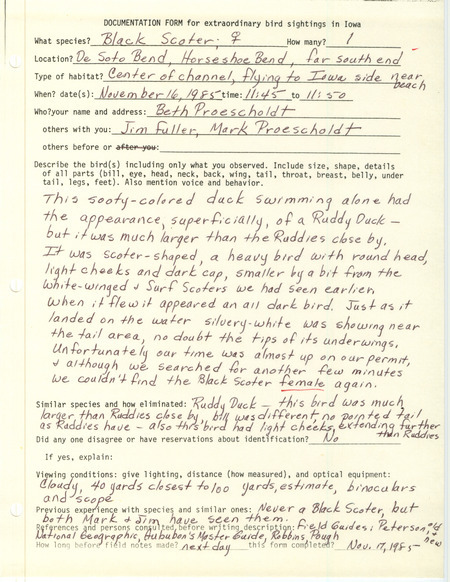 DOCUMENTATION FORM for extraordinary bird sightings in Iowa
What species? Black Scoter; ♀ How many? 1
Location? De Soto Bend, Horseshoe Bend, far south end
Type of habitat? Center of channel, flying to Iowa side near beach
When? date(s): November 16, 1985 time: 11:45 to 11:50
Who? your name and address: Beth Proescholdt
others with you: Jim Fuller, Mark Proescholdt
others before or after you:
Describe the bird(s) including only what you observed. Include size, shape, details
of all parts (bill, eye, head, neck, back, wing, tail, throat, breast, belly, under
tail, legs, feet). Also mention voice and behavior.
This sooty-colored duck swimming alone had
the appearance, superficially, of a Ruddy Duck –
but it was much larger than the Ruddies close by.
It was scoter-shaped, a heavy bird with round head,
light cheeks and dark cap, smaller by a bit from the
White-winged & Surf Scoters we had seen earlier.
When it flew it appeared an all dark bird. Just as it
landed on the water silvery-white was showing near
the tail area, no doubt the tips of its underwings.
Unfortunately our time was almost up on our permit,
& although we searched for another few minutes
we couldn't find the Black Scoter female again.
Similar species and how eliminated: Ruddy Duck – this bird was much
larger than Ruddies close by, bill was different, no pointed tail
as Ruddies have – also this bird had light cheeks extending further
than Ruddies
Did any one disagree or have reservations about identification? No
If yes, explain:
Viewing conditions: give lighting, distance (how measured), and optical equipment:
Cloudy, 40 yards closest to 100 yards, estimate, binoculars
and scope
Previous experience with species and similar ones: Never a Black Scoter, but
both Mark & Jim have seen them.
References and persons consulted before writing description: Field Guides: Peterson, old & new
National Geographic, Aububon's Master Guide, Robbins, Pough
How long before field notes made? next day this form completed? Nov. 17, 1985